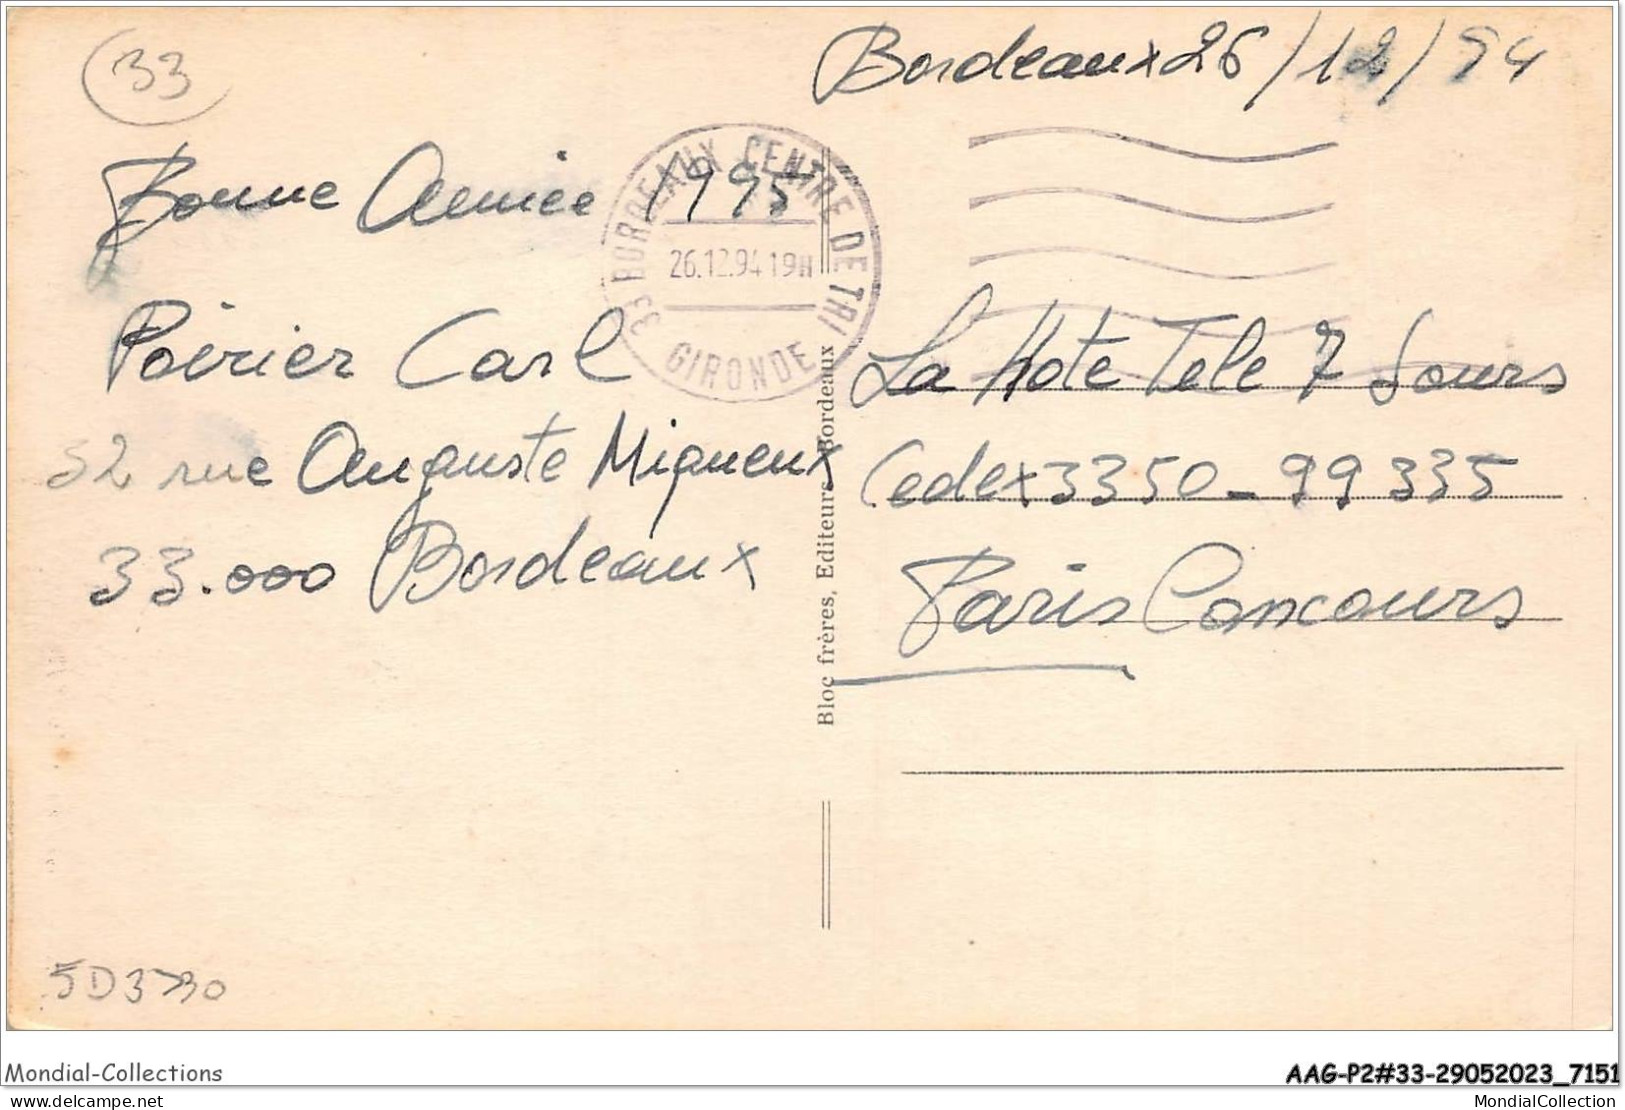 33
Bordeaux 26/12/94
Bonne Année 1995
33 BORDEAUX CENTRE DE TRI
26.12.94 19H
GIRONDE
Poirier Carl
52 rue Auguste Miqueux
33.000 Bordeaux
La Hote Tele 7 Jours
Cedex 3350 - 99 335
Paris Concours
Bloc frères, Editeurs Bordeaux
5D3730
Mondial-Collections
AAG-P2#33-29052023_7151
delcampe.net
MondialCollection